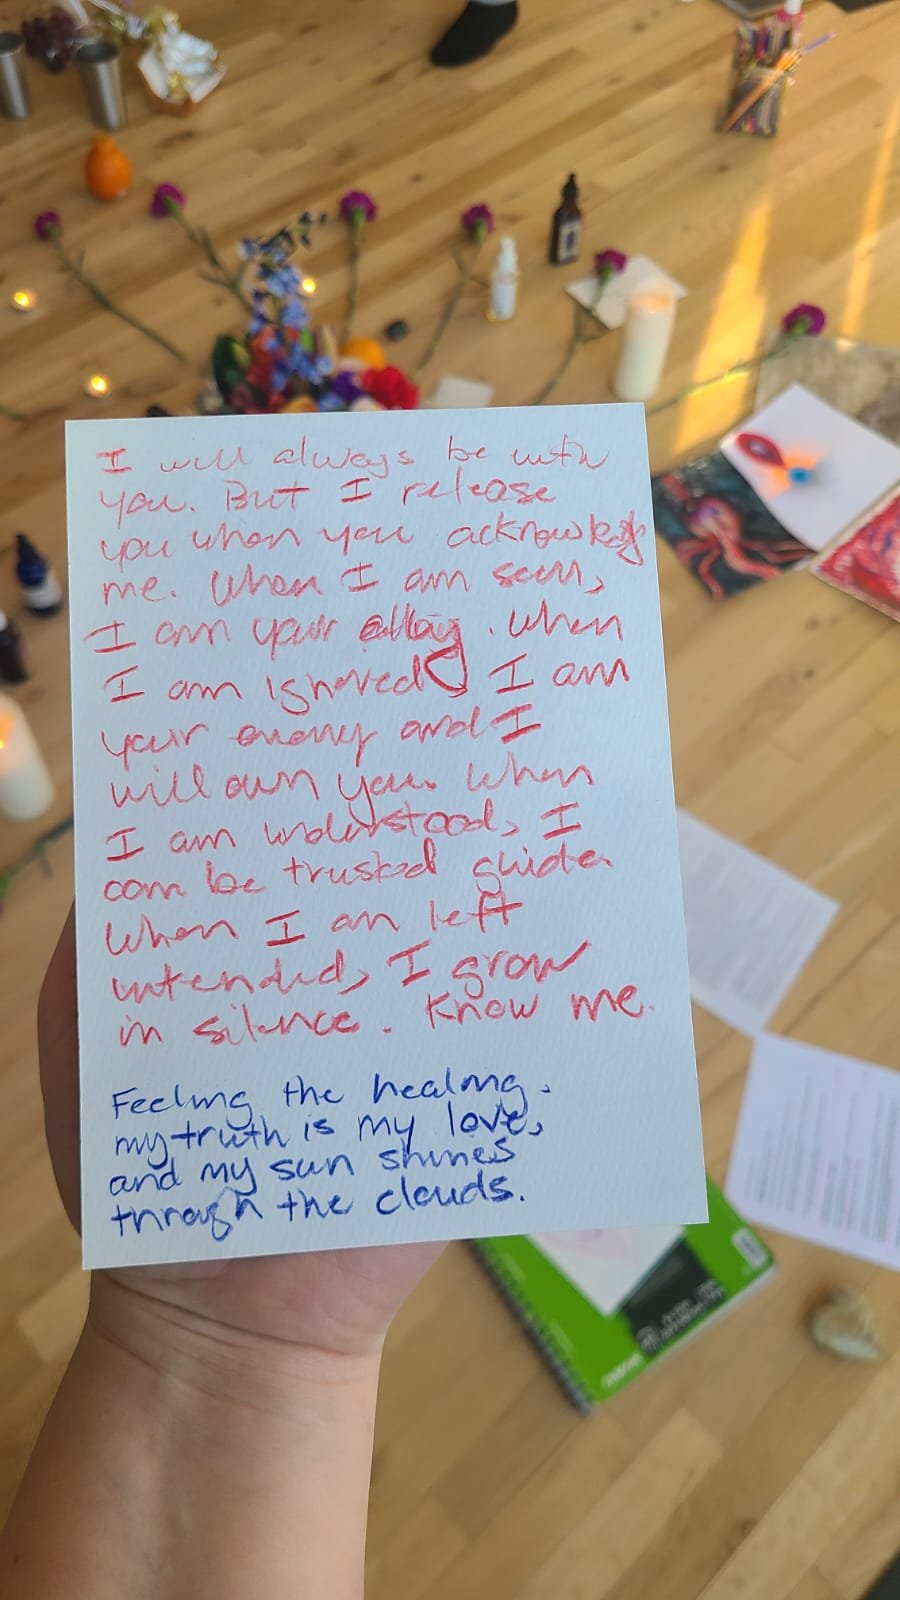 I will always be with
you. But I release
you when you acknowledge
me. When I am seen,
I am your allay. When
I am ignored, I am
your enemy and I
will own you. When
I am understood, I
can be trusted guide.
When I am left
untended, I grow
in silence. Know me.
Feeling the healing.
my truth is my love,
and my sun shines
through the clouds.